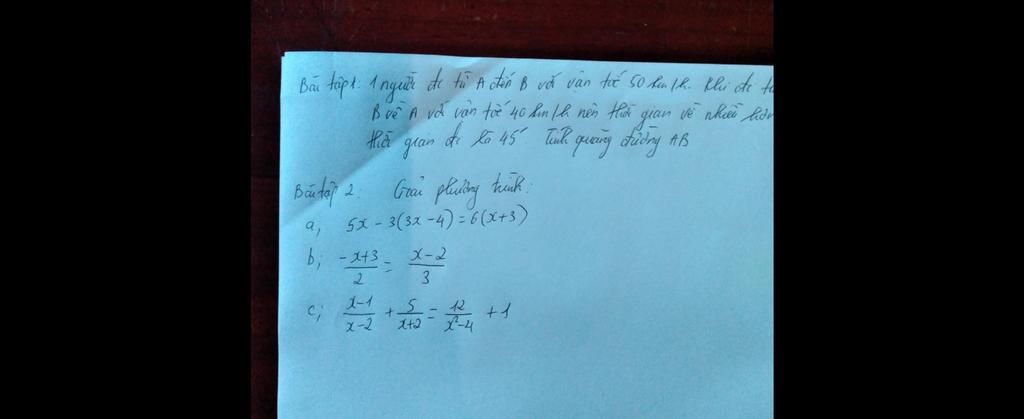 Bài tập 1: 1 người đi từ A đến B với vận tốc 50 km/h. Khi đi từ
B về A với vận tốc 40 km/h nên thời gian về nhiều hơn
thời gian đi là 45'. Tính quãng đường AB
Bài tập 2: Giải phương trình:
a, 5x - 3(3x - 4) = 6(x+3)
b, \frac{-x+3}{2} = \frac{x-2}{3}
c, \frac{x-1}{x-2} + \frac{5}{x+2} = \frac{12}{x²-4} + 1